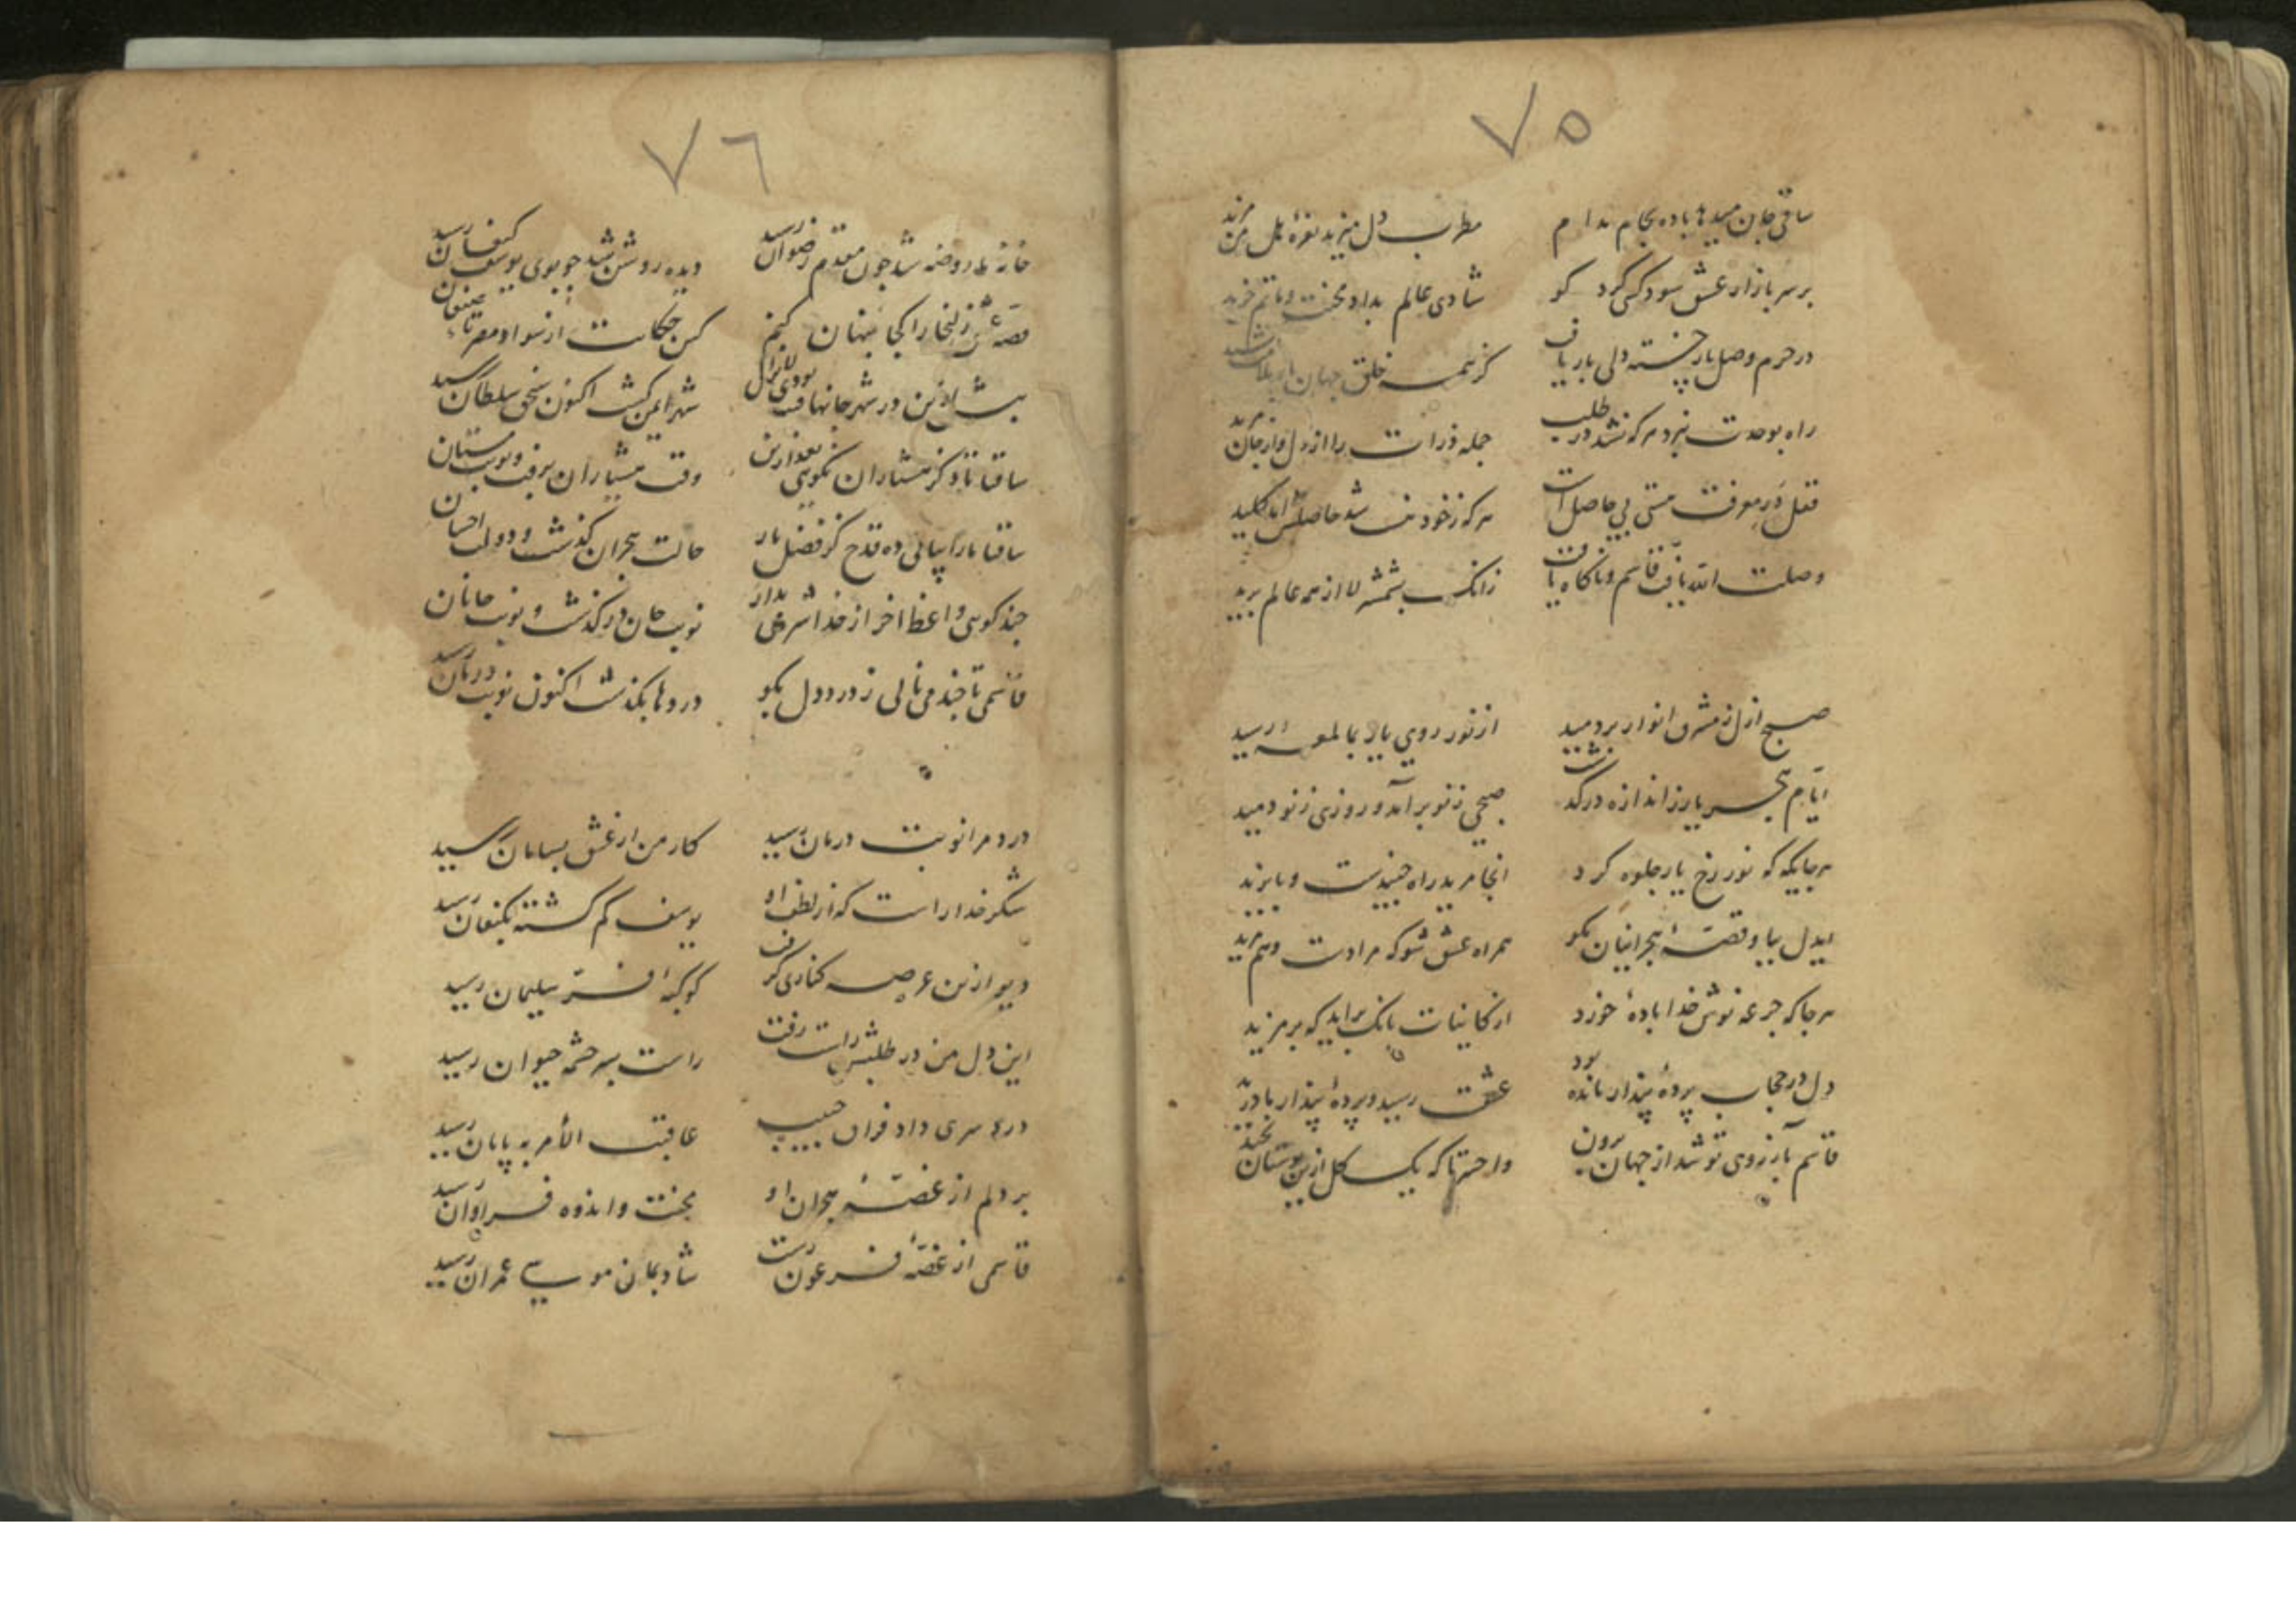 ٧٥
ساقی جان میدهد باده بجام مدام مطرب دل میزند نعرهٔ هل من مزید
بر سر بازار عشق سود کسی کرد کو شادی عالم بداد محنت و ماتم خرید
در حرم وصل یار خسته دلی بار یافت کز همه خلق جهان بار ملامت کشید
راه بوحدت نبرد هر که نشد در طلب جمله ذرات را از دل و از جان مرید
قفل در معرفت هستی بی حاصل است هر که ز خود نیست شد حاصلش آمد کلید
وصلت الله یافت قاسم و ناگاه یافت زانک بشمشیر لا از همه عالم برید
صبح ازل ز مشرق انوار بردمید از نور روی یار بما لمعه رسید
ایام هجر یار ز اندازه درگذشت صبحی ز نو برآمد و روزی ز نو دمید
هر جایگه که نور رخ یار جلوه کرد انجا مرید راه جنیدست و بایزید
ایدل بیا و قصهٔ هجرانیان بگو همراه عشق شو که مرادست و هم مرید
هر جا که جرعه نوش خدا بادهٔ خورد از کاینات بانک براید که بر مزید
دل در حجاب پردهٔ پندار مانده بود عشقت رسید و پردهٔ پندار ما درید
قاسم بآرزوی تو شد از جهان برون وا حسرتا که یک گل ازین بوستان نچید
٧٦
خانه روضه شد چون مقدم رضوان رسید دیده روشن شد چو بوی یوسف کنعان رسید
قصهٔ عشق زلیخا را کجا پنهان کنم کین حکایت از سواد مصر تا کنعان
بیش ازین در شهر جانها فتنه بودی لایزال شهر ایمن گشت اکنون شحنه سلطان رسید
ساقیا تا ذکر هشیاران نگویی بعد ازین وقت هشیاران برفت و نوبت مستان
ساقیا ما را بیاپی ده قدح کز فضل یار حالت هجران گذشت و دولت احسان
چند گویی واعظا اخر از خدا شرمی بدار نوبت جان درگذشت و نوبت جانان
قاسمی تا چند می نالی ز درد دل بگو دردها بگذشت اکنون نوبت درمان رسید
درد مرا نوبت درمان رسید کار من از عشق بسامان رسید
شکر خدا راست که از لطف او یوسف گم گشته بکنعان رسید
دیو ازین عرصه کناری گرفت کوکبهٔ فر سلیمان رسید
این دل من در طلبش راست رفت راست بسر چشمه حیوان رسید
درد سری داد فراق حبیب عاقبت الأمر به پایان رسید
بر دلم از غصهٔ هجران او محنت و اندوه فراوان رسید
قاسمی از غصهٔ فرعون رست شادبمان موسی عمران رسید